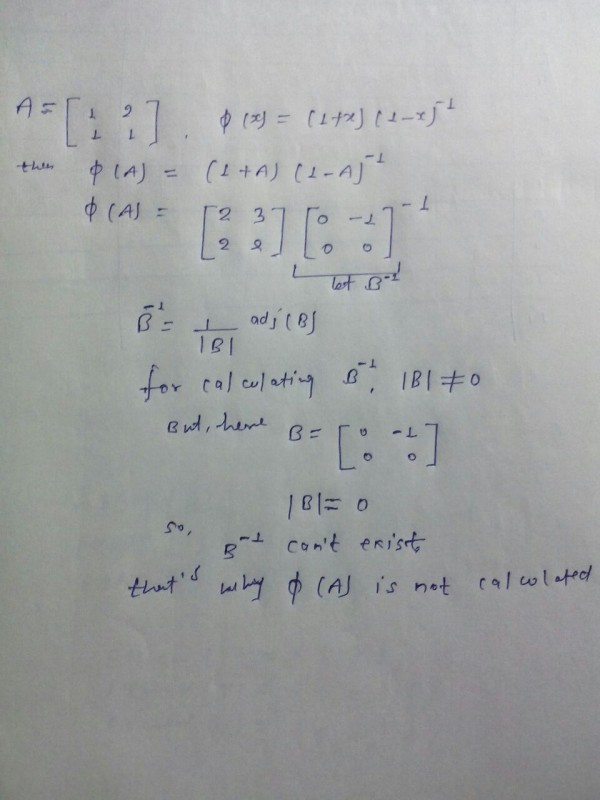 A = [ 1 2 ; 1 1 ] . ϕ(x) = (1+x) (1-x)^-1
then ϕ(A) = (1+A) (1-A)^-1
ϕ(A) = [ 2 3 ; 2 2 ] [ 0 -1 ; 0 0 ]^-1
let B^-1
B^-1 = 1/|B| adj(B)
for calculating B^-1, |B| ≠ 0
But, here B = [ 0 -1 ; 0 0 ]
|B| = 0
so,
B^-1 can't exist
that's why ϕ(A) is not calculated